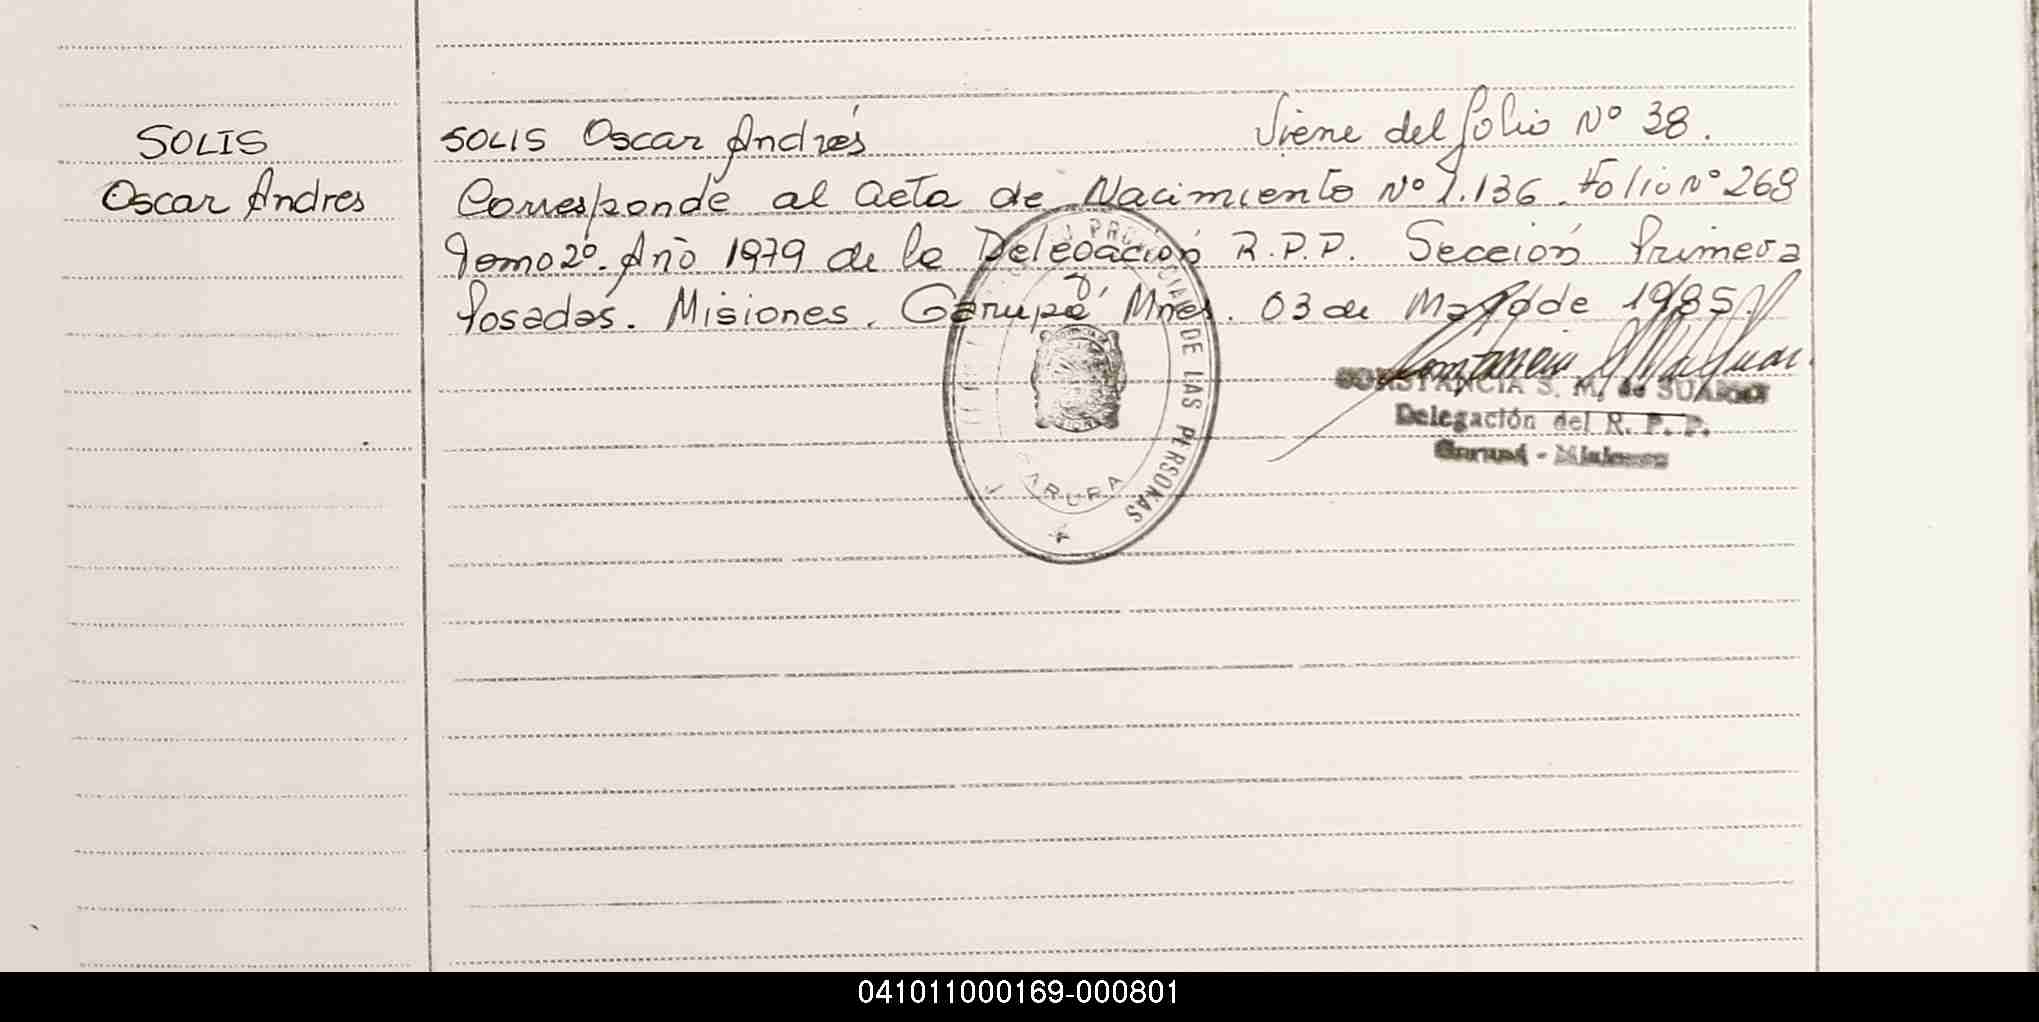 SOLIS
Oscar Andres
SOLIS Oscar Andrés Viene del folio Nº 38.
Corresponde al acta de Nacimiento Nº 1.136. Folio Nº 268
Tomo 2º. Año 1979 de la Delegación R.P.P. Sección Primera
Posadas. Misiones. Garupá Mnes. 03 de de 1985.
PROVINCIAL DE LAS PERSONAS
GARUPA
CONSTANCIA S. M. de SUAREZ
Delegación del R. P. P.
Garupá - Misiones
041011000169-000801